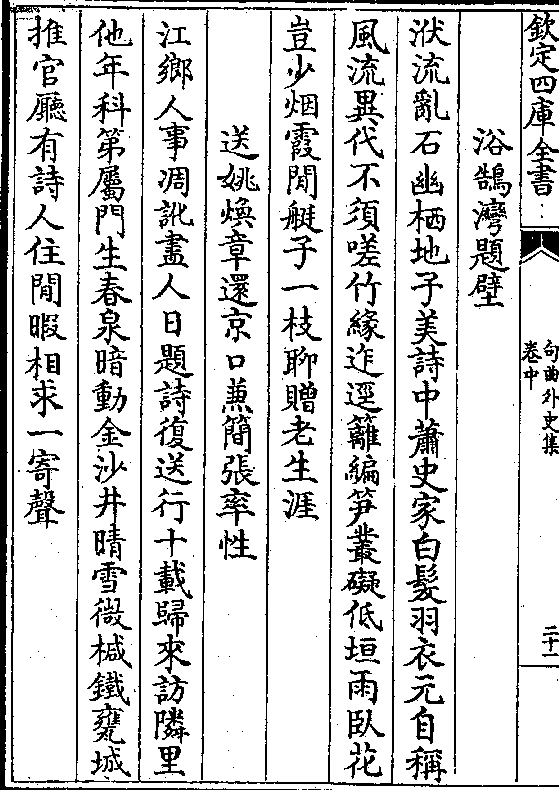 欽定四庫全書
句曲外史集
卷中
二十一
浴鵠灣題壁
洑流亂石幽栖地子美詩中蕭史家白髮羽衣元自稱
風流異代不須嗟竹緣迮逕籬編笋叢礙低垣雨臥花
豈少烟霞閒艇子一枝聊贈老生涯
送姚煥章還京口兼簡張率性
江鄉人事凋訛盡人日題詩復送行十載歸來訪隣里
他年科第屬門生春泉暗動金沙井晴雪微椷鐵甕城
推官廳有詩人住閒暇相求一寄聲